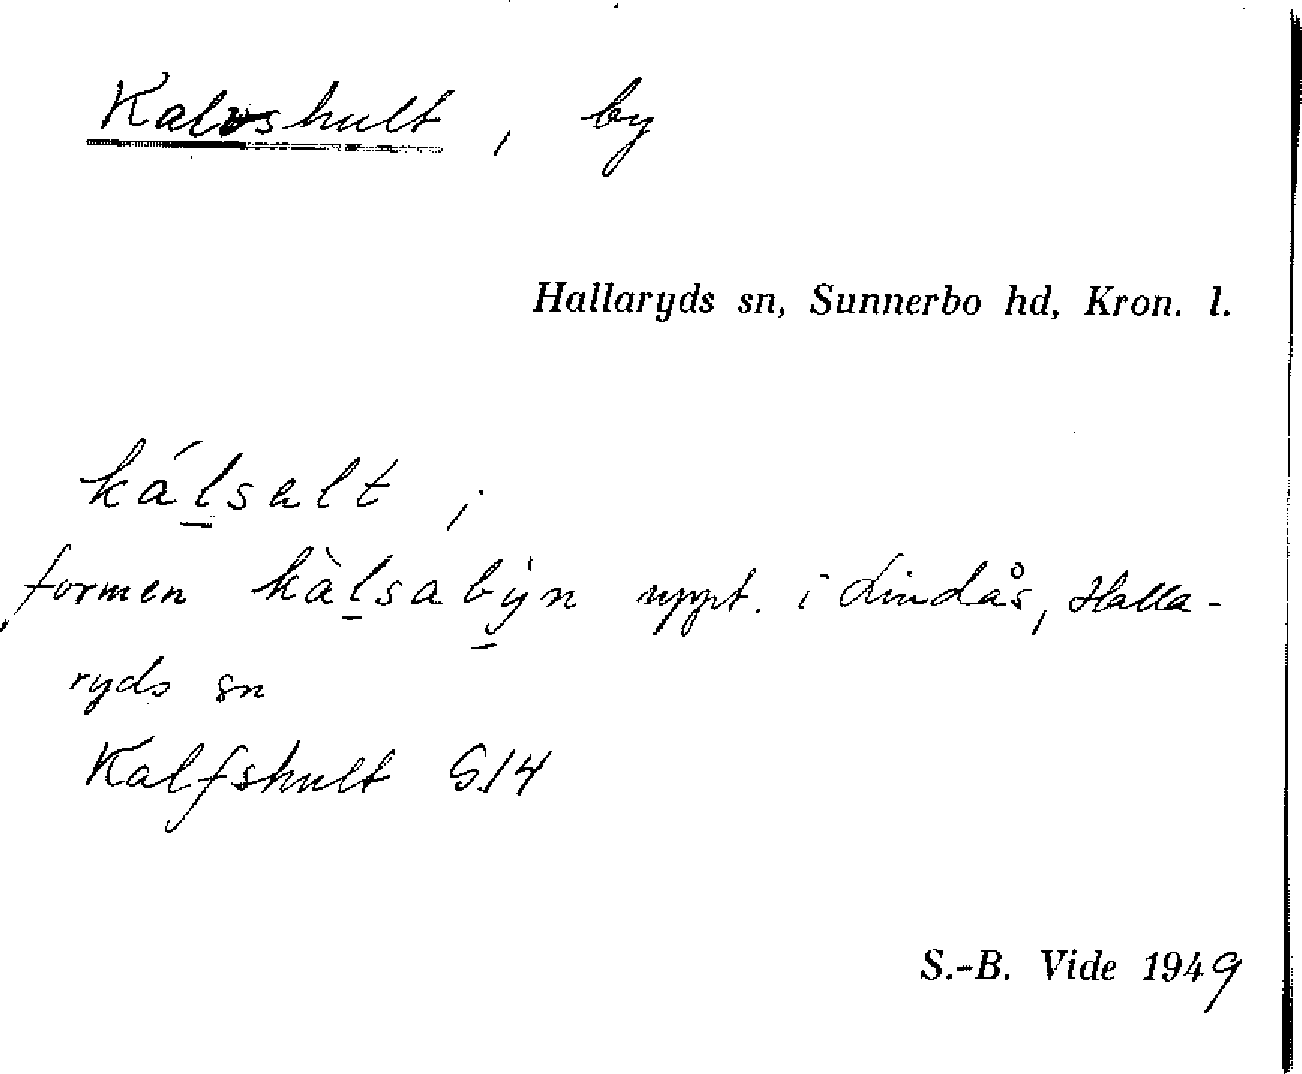 Kalvshult, by
Hallaryds sn, Sunnerbo hd, Kron. l.
ká̀l̲salt;
formen kàl̲sabý̲n uppt. i Lindås, Halla-
ryds sn
Kalfshult GJ4
S.-B. Vide 1949